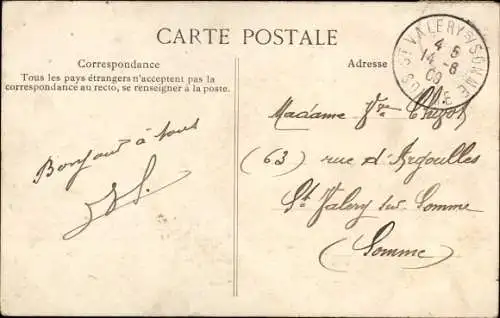 CARTE POSTALE
Correspondance
Tous les pays étrangers n'acceptent pas la
correspondance au recto, se renseigner à la poste.
Bonjour à tous
Adresse
ST VALERY S/ SOMME
4 5
14 - 8
09
Madame Vve
(63) rue d'Argoulles
St Valery sur Somme
(Somme)